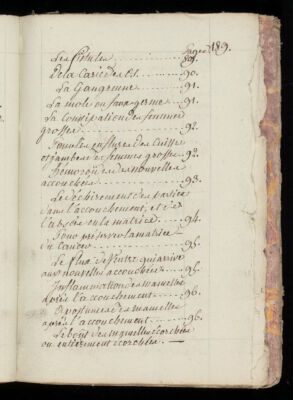 Pages 189.
Les fistules 89.
De la Carie des os. 90.
La Gangrenne 91.
La mole ou faux germe 91.
La Constipation des femmes
grosses 92.
Pour les enflures des Cuisses
et jambes des femmes grosses 92.
hemoroïdes des nouvelles
accouchées 93.
Le déchirement des parties
dans l'accouchement, et de
l'abscès ou la matrice 94.
Pour préserver la matrice
du Cancer 95.
Le flux de Ventre qui arrive
aux nouvelles accouchées 95.
Inflammation des mamelles
après l'accouchement 96.
Apostumes des mamelles
après l'accouchement 96.
Le bout des mamelles écorchées
ou entierement écorchées.